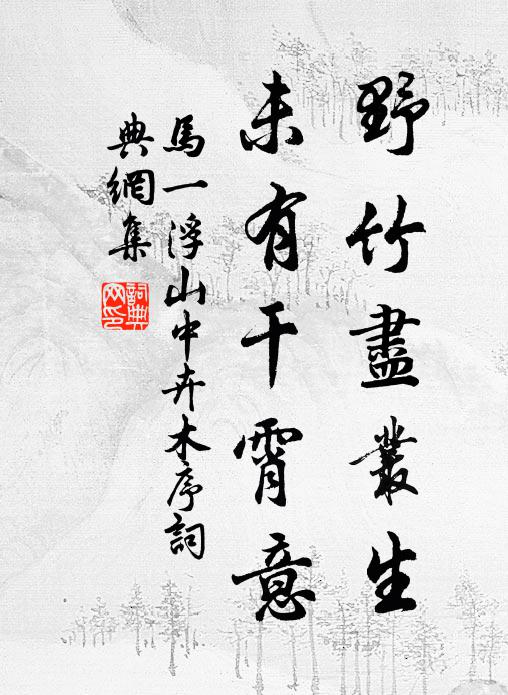 野竹盡叢生
未有干霄意
馬一浮山中卉木序詞
典網集
詞典網印